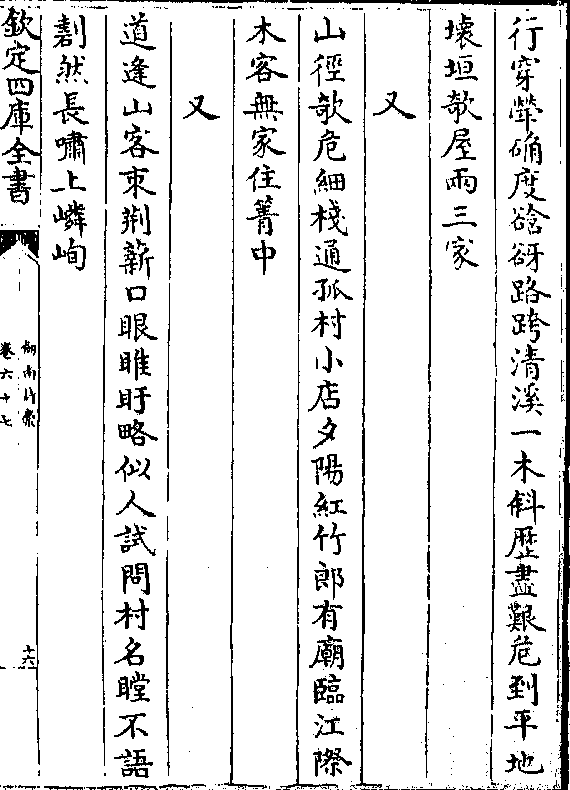 行穿犖确度谽谺路跨清溪一木斜歴盡艱危到平地
壊垣欹屋兩三家
又
山徑欹危細棧通孤村小店夕陽紅竹郎有廟臨江際
木客無家住箐中
又
道逢山客束荆薪口眼睢盱略似人試問村名瞠不語
劃然長嘯上嶙峋
欽定四庫全書
劍南詩稾
卷六十七
十六